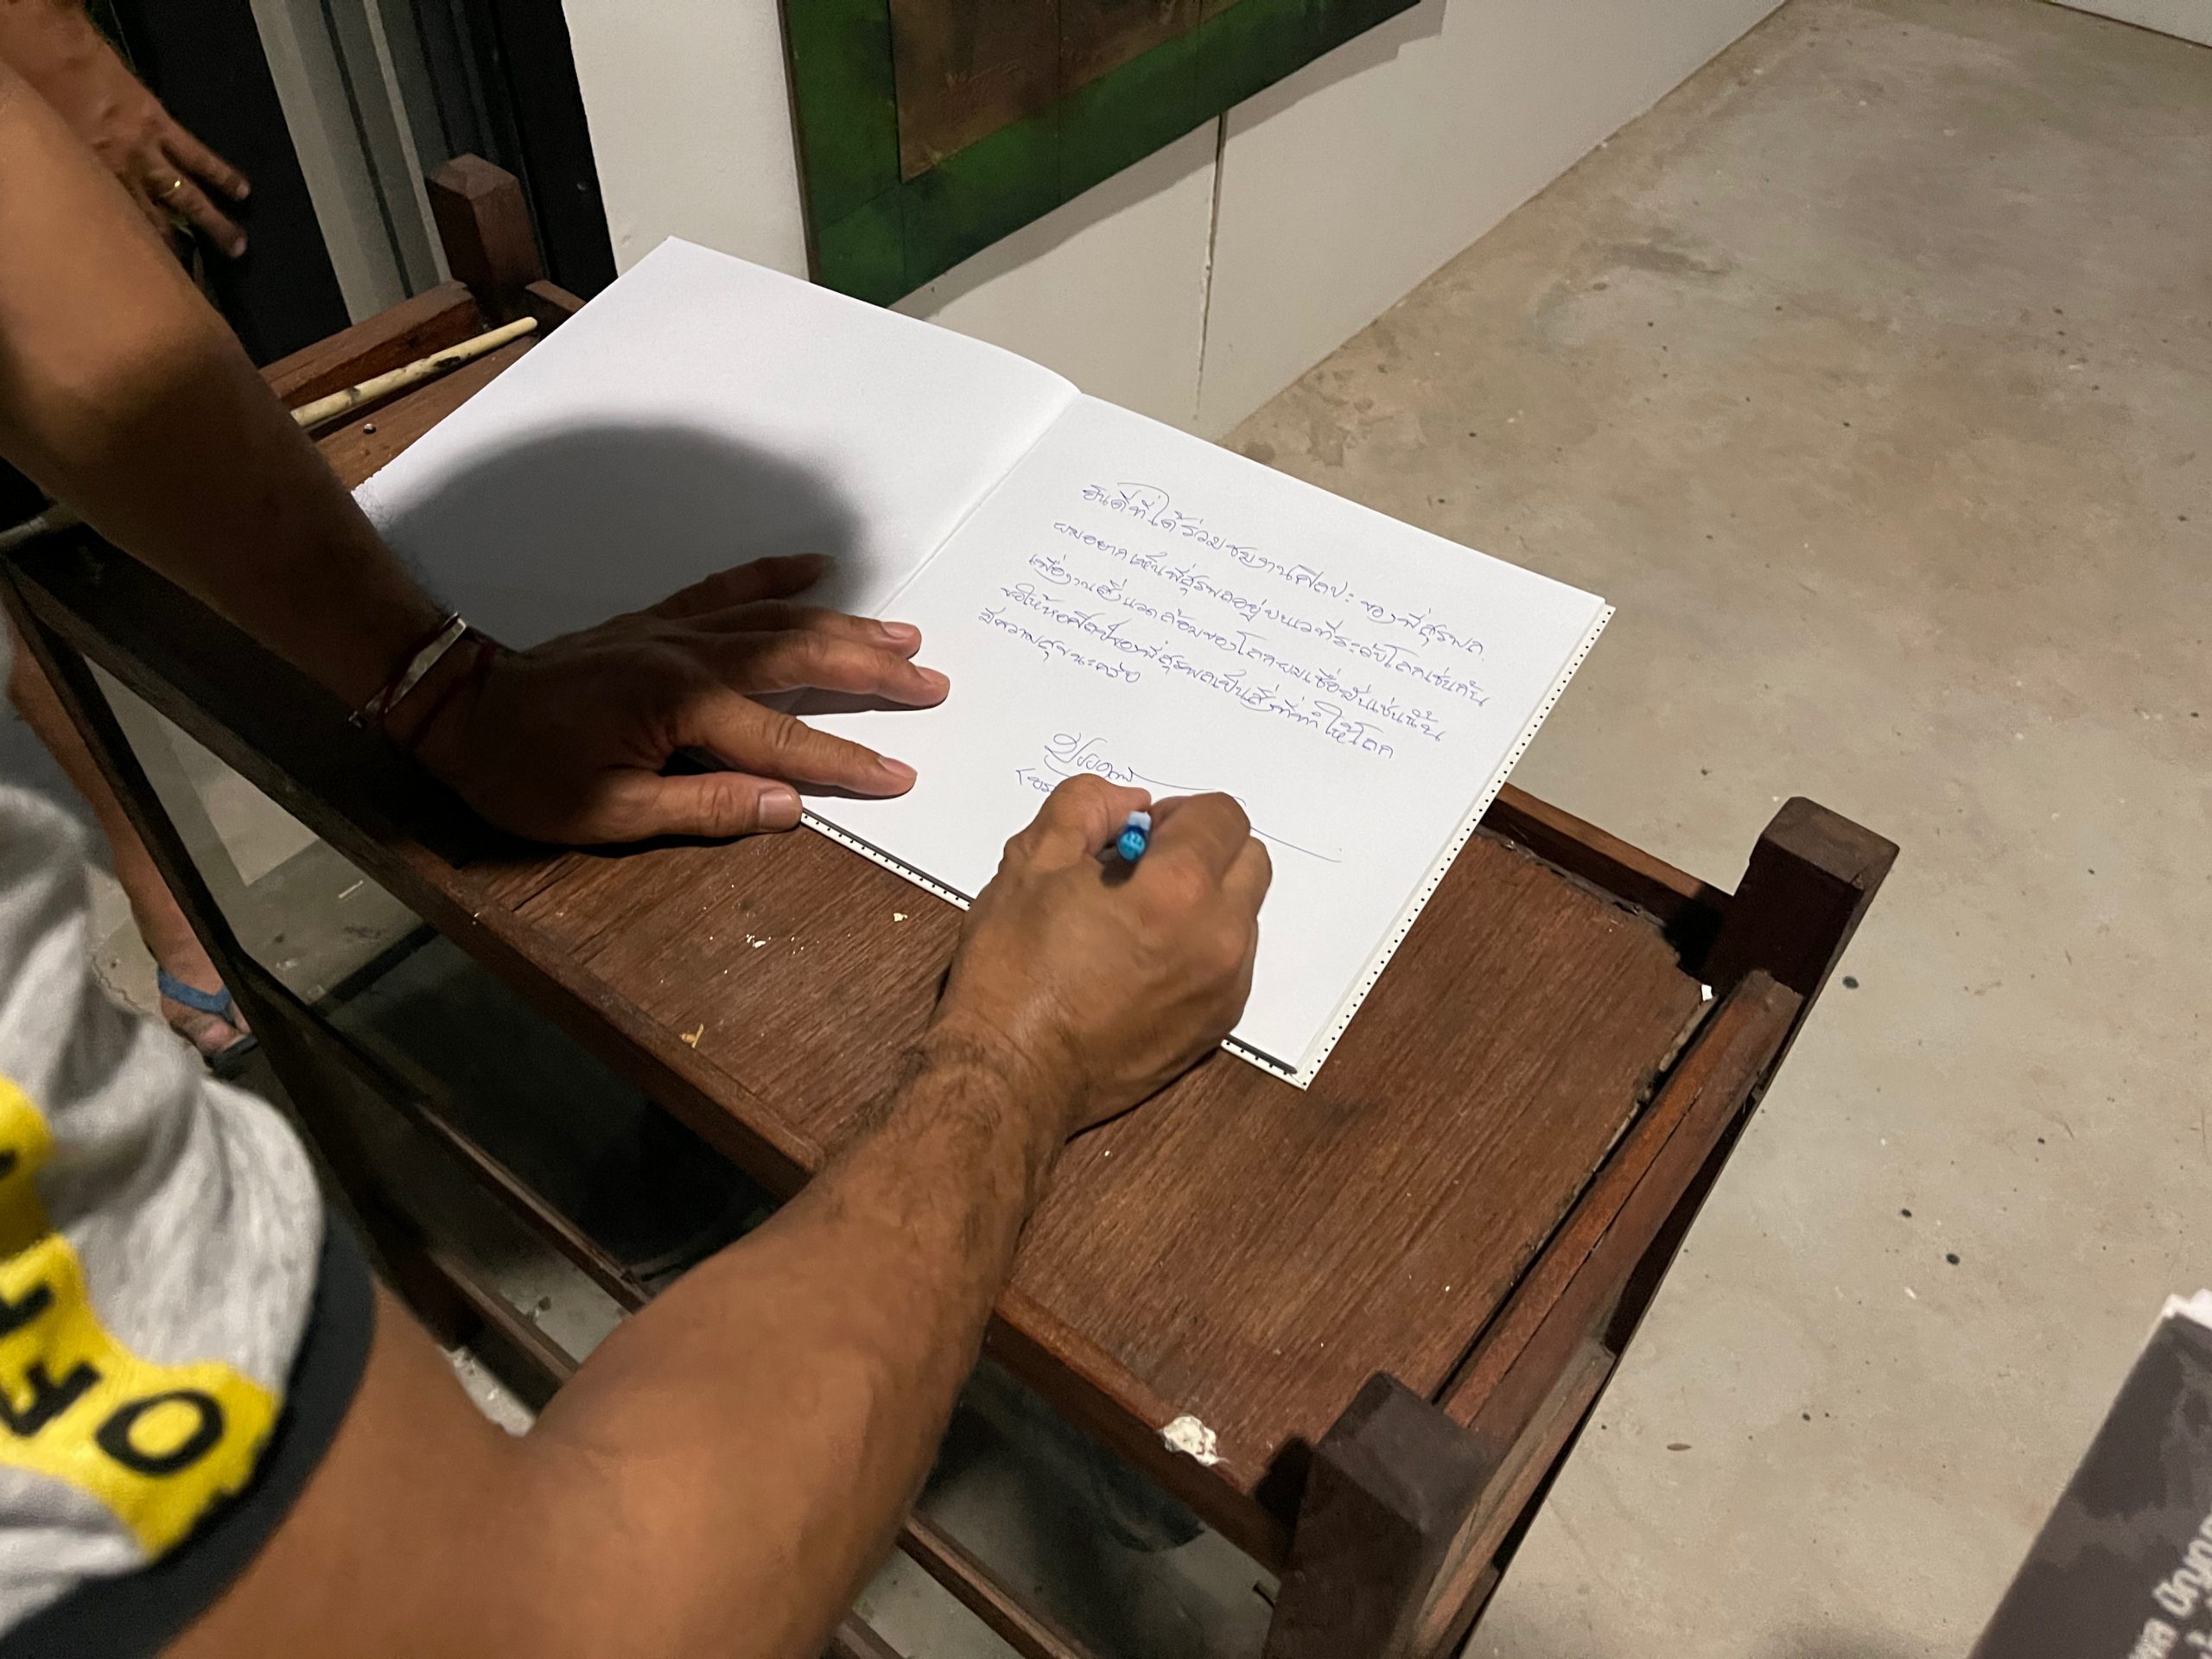 ยินดีที่ได้ร่วมชมงานศิลปะ ของพี่สุรพล
ผมอยากเห็นพี่สุรพลอยู่บนเวทีระดับโลกเช่นกัน
เพื่องานสิ่งแวดล้อมของโลกผมเชื่อมั่นเช่นนั้น
ขอให้หอศิลป์ของพี่สุรพลเป็นสิ่งที่ทำให้โลก
มีความสุขนะครับ
OFF
พล ปัญญา